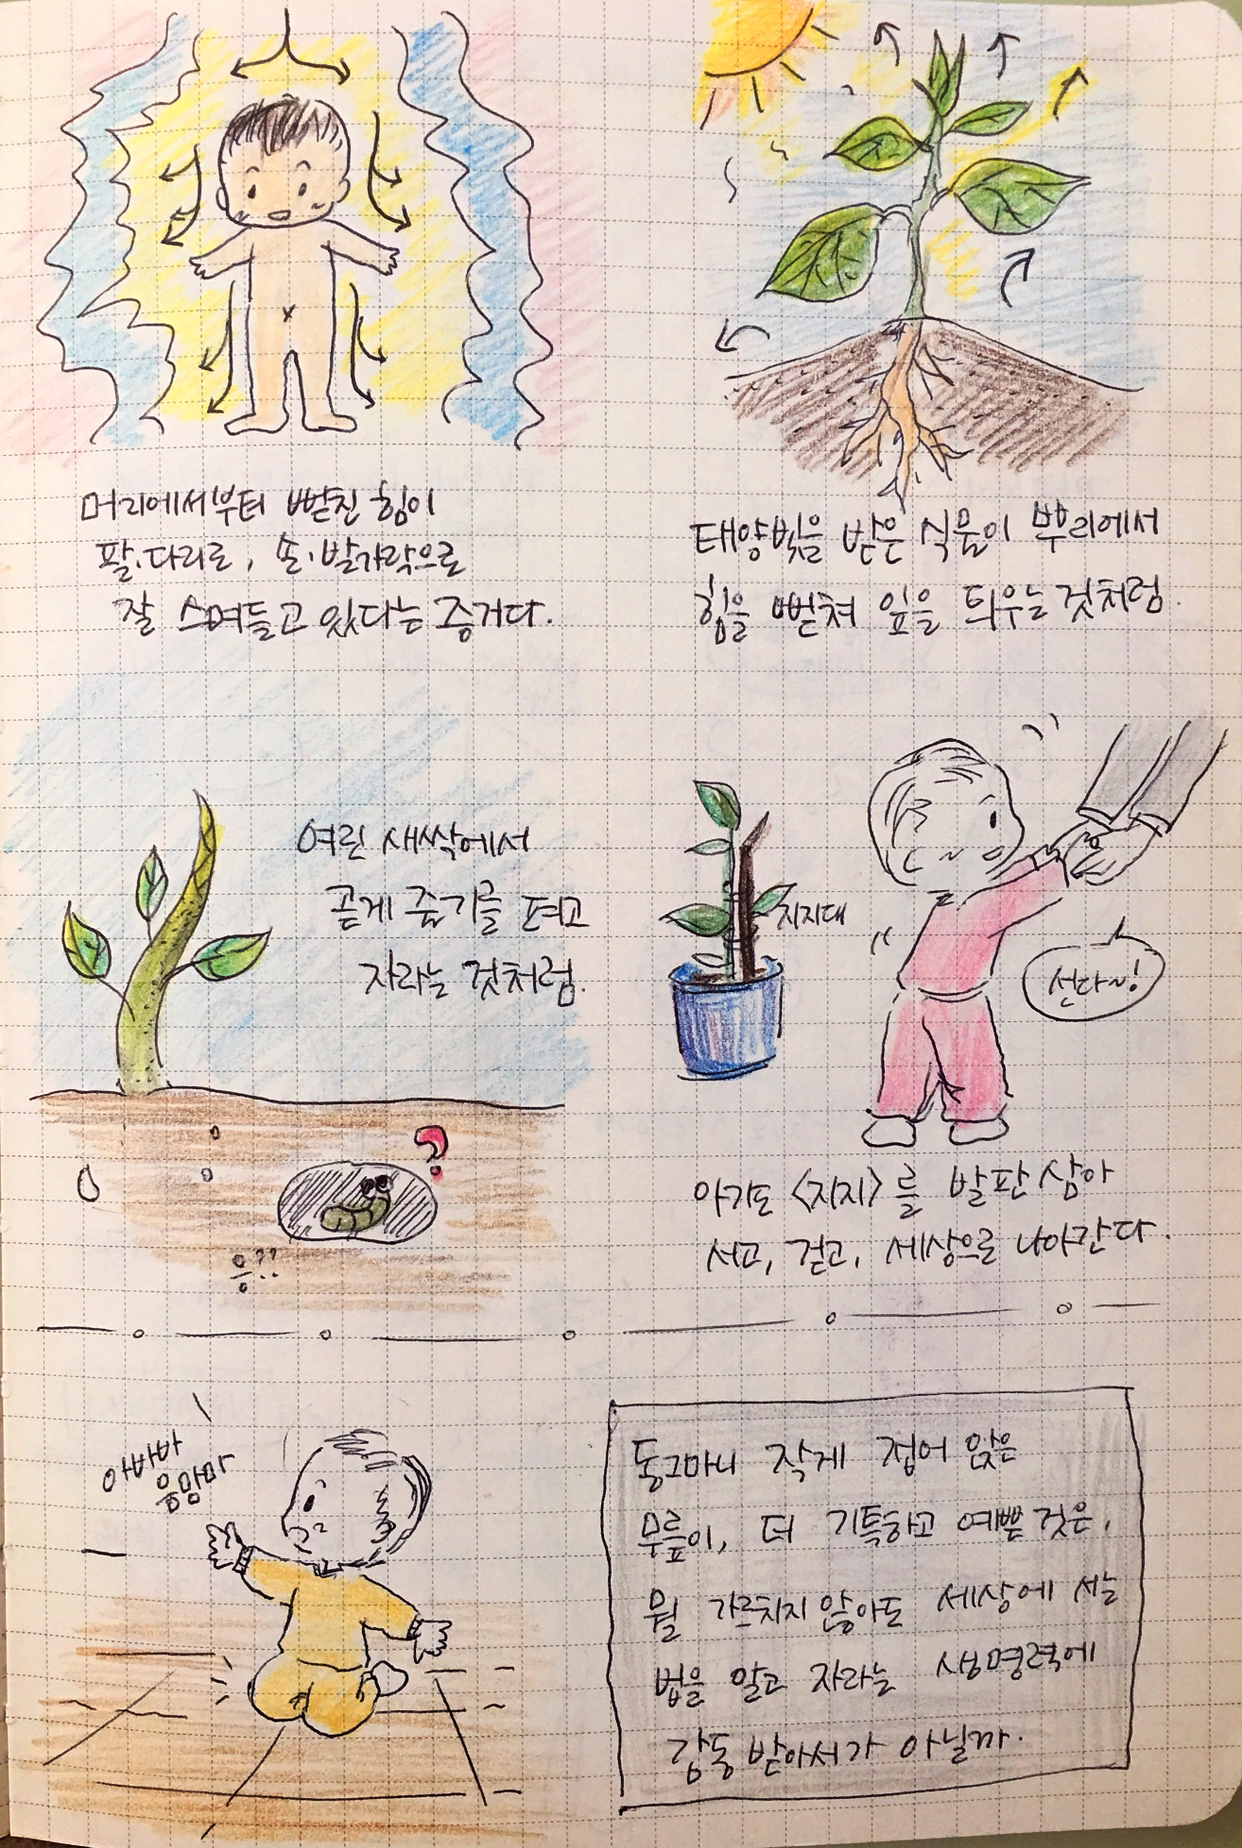 머리에서부터 뻗친 힘이
팔·다리로, 손·발가락으로
잘 스며들고 있다는 증거다.
태양빛을 받은 식물이 뿌리에서
힘을 뻗쳐 잎을 틔우는 것처럼.
여린 새싹에서
곧게 줄기를 펴고
자라는 것처럼.
응??
지지대
선다~!
아기도 <지지>를 발판 삼아
서고, 걷고, 세상으로 나아간다.
아바바
음맘마
동그마니 작게 접어 앉은
무릎이, 더 기특하고 예쁜 것은,
뭘 가르치지 않아도 세상에 서는
법을 알고 자라는 생명력에
감동 받아서가 아닐까.